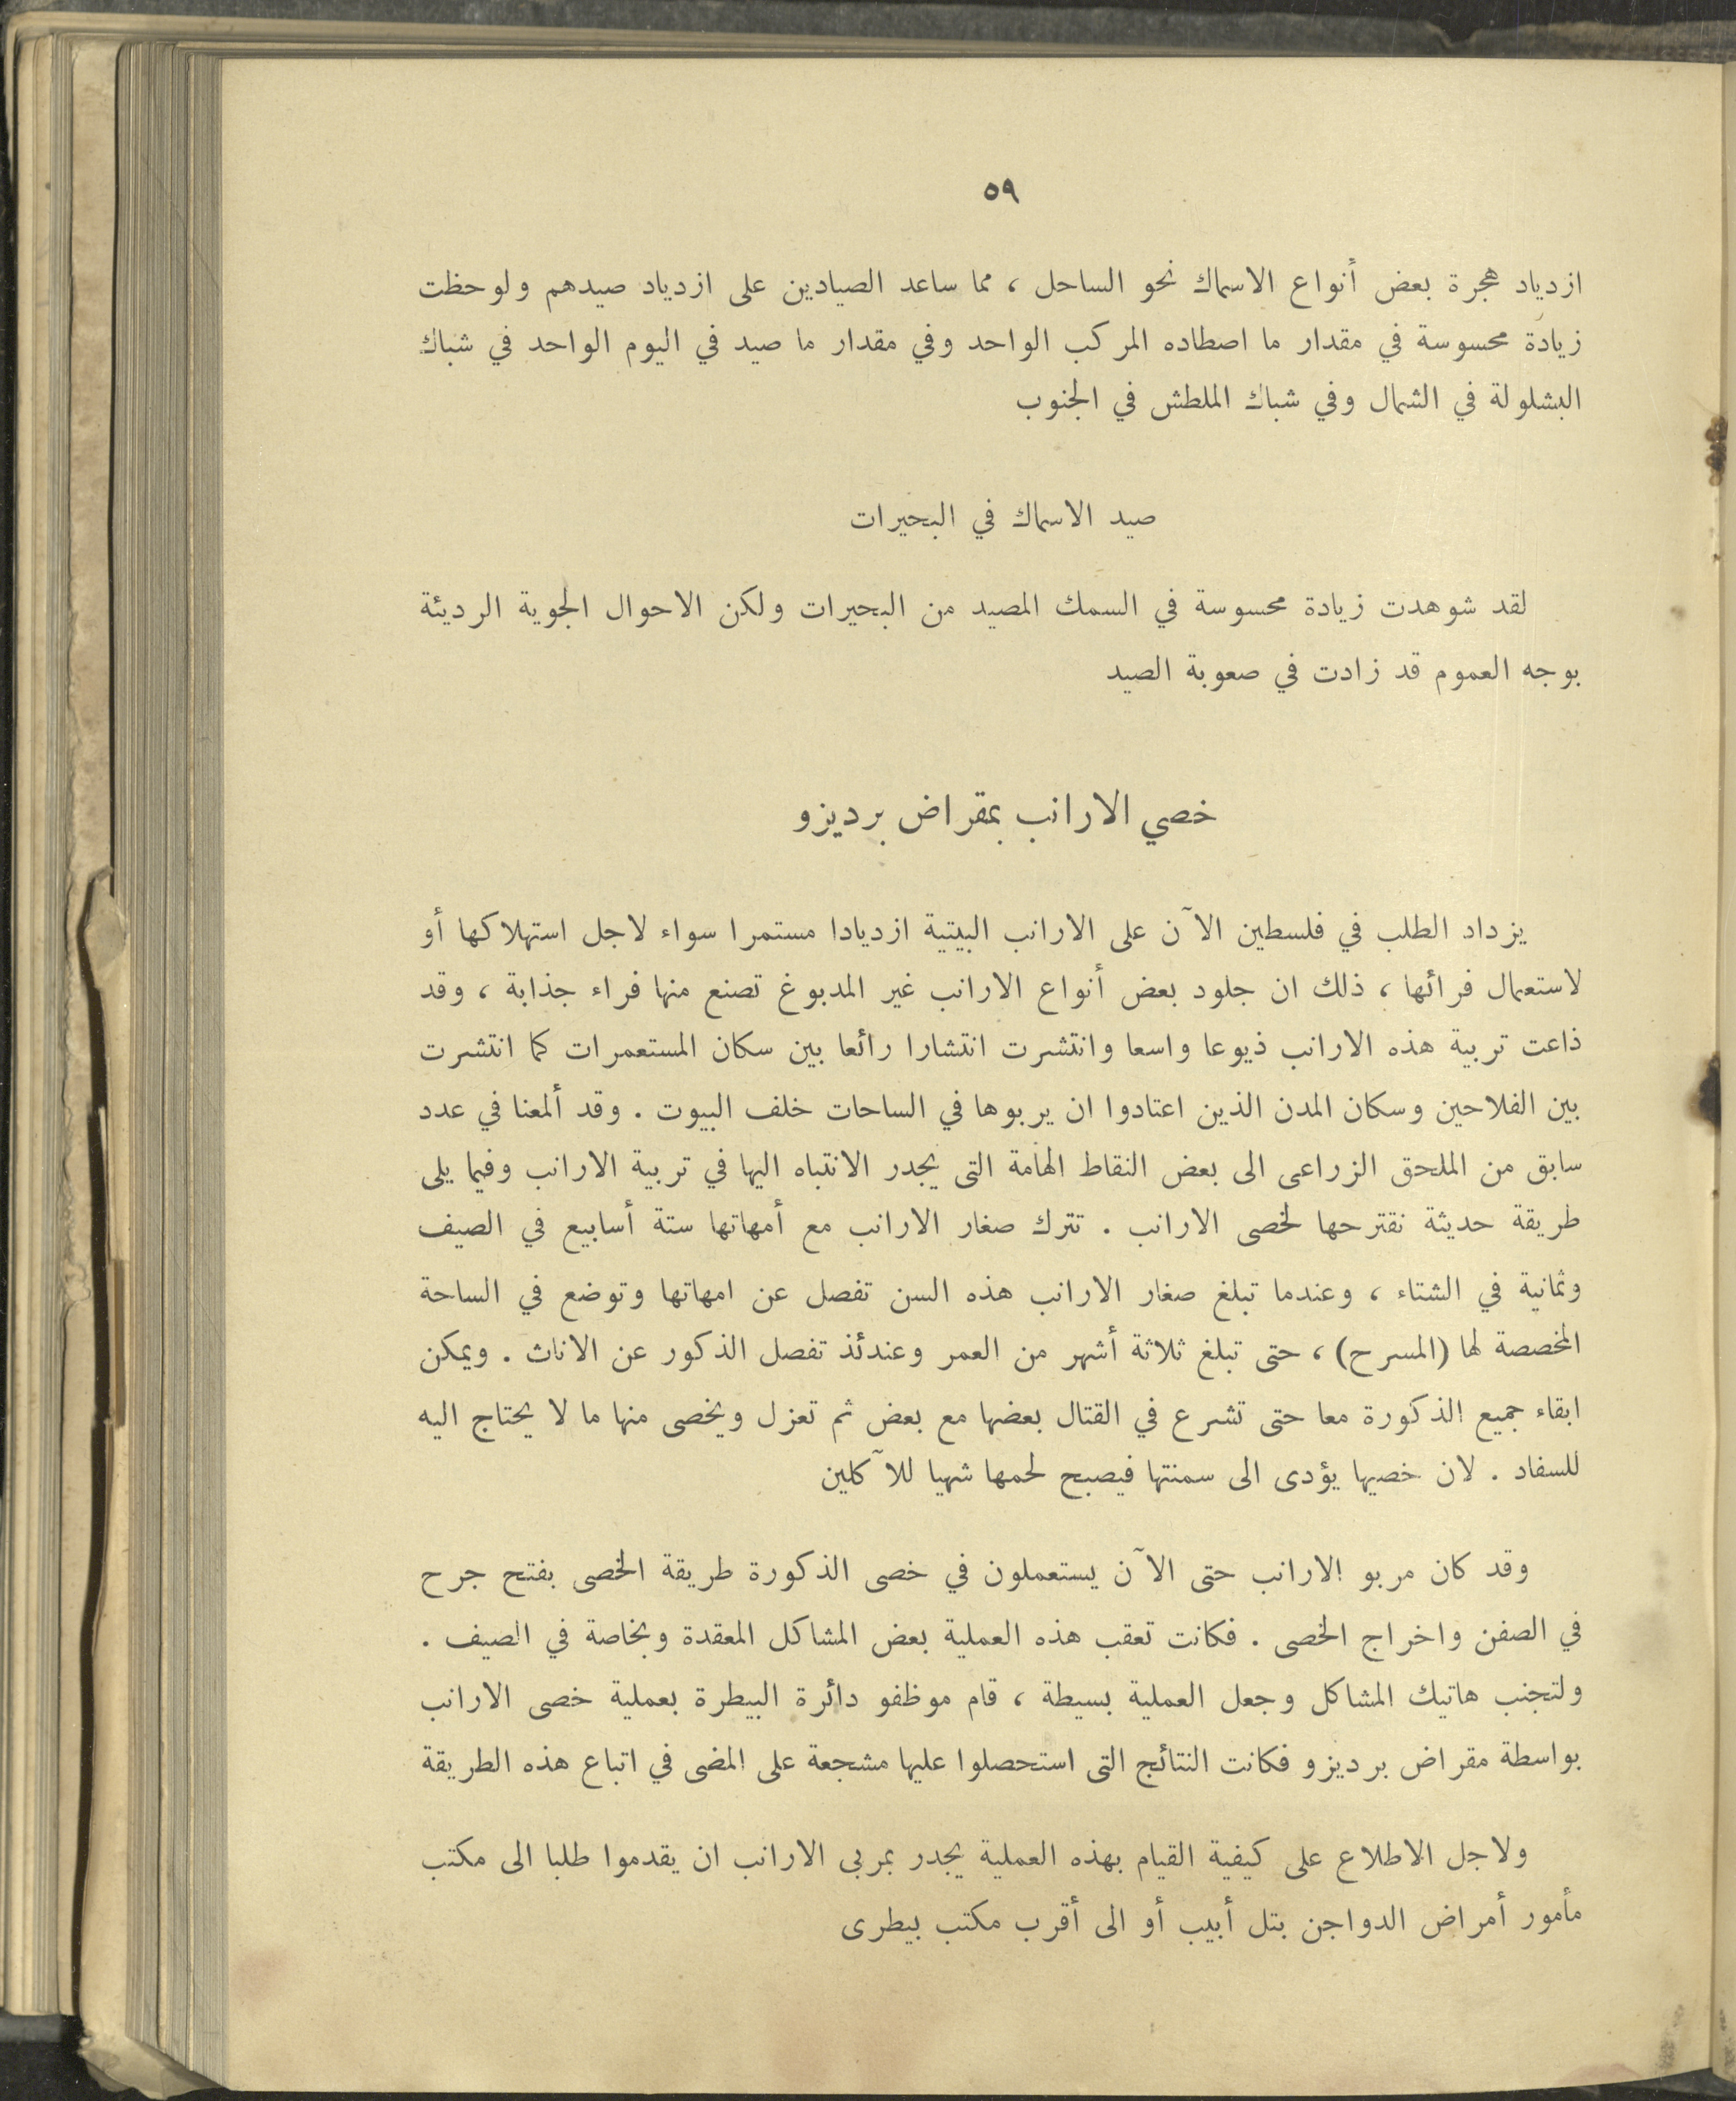 ٥٩
ازدياد هجرة بعض أنواع الاسماك نحو الساحل ، مما ساعد الصيادين على ازدياد صيدهم ولوحظت
زيادة محسوسة في مقدار ما اصطاده المركب الواحد وفي مقدار ما صيد في اليوم الواحد في شباك
البشلولة في الشمال وفي شباك الملطش في الجنوب
صيد الاسماك في البحيرات
لقد شوهدت زيادة محسوسة في السمك المصيد من البحيرات ولكن الاحوال الجوية الرديئة
بوجه العموم قد زادت في صعوبة الصيد
خصي الارانب بمقراض برديزو
يزداد الطلب في فلسطين الآن على الارانب البيتية ازديادا مستمرا سواء لاجل استهلاكها أو
لاستعمال فرائها ، ذلك ان جلود بعض أنواع الارانب غير المدبوغ تصنع منها فراء جذابة ، وقد
ذاعت تربية هذه الارانب ذيوعا واسعا وانتشرت انتشارا رائعا بين سكان المستعمرات كما انتشرت
بين الفلاحين وسكان المدن الذين اعتادوا ان يربوها في الساحات خلف البيوت . وقد ألمعنا في عدد
سابق من الملحق الزراعى الى بعض النقاط الهامة التى يجدر الانتباه اليها في تربية الارانب وفيما يلى
طريقة حديثة نقترحها لخصى الارانب . تترك صغار الارانب مع أمهاتها ستة أسابيع في الصيف
وثمانية في الشتاء ، وعندما تبلغ صغار الارانب هذه السن تفصل عن امهاتها وتوضع في الساحة
المخصصة لها (المسرح) ، حتى تبلغ ثلاثة أشهر من العمر وعندئذ تفصل الذكور عن الاناث . ويمكن
ابقاء جميع الذكورة معا حتى تشرع في القتال بعضها مع بعض ثم تعزل ويخصى منها ما لا يحتاج اليه
للسفاد . لان خصيها يؤدى الى سمنتها فيصبح لحمها شهيا للآكلين
وقد كان مربو الارانب حتى الآن يستعملون في خصى الذكورة طريقة الخصى بفتح جرح
في الصفن واخراج الخصى . فكانت تعقب هذه العملية بعض المشاكل المعقدة وبخاصة في الصيف .
ولتجنب هاتيك المشاكل وجعل العملية بسيطة ، قام موظفو دائرة البيطرة بعملية خصى الارانب
بواسطة مقراض برديزو فكانت النتائج التى استحصلوا عليها مشجعة على المضى في اتباع هذه الطريقة
ولاجل الاطلاع على كيفية القيام بهذه العملية يجدر بمربى الارانب ان يقدموا طلبا الى مكتب
مأمور أمراض الدواجن بتل أبيب أو الى أقرب مكتب بيطرى